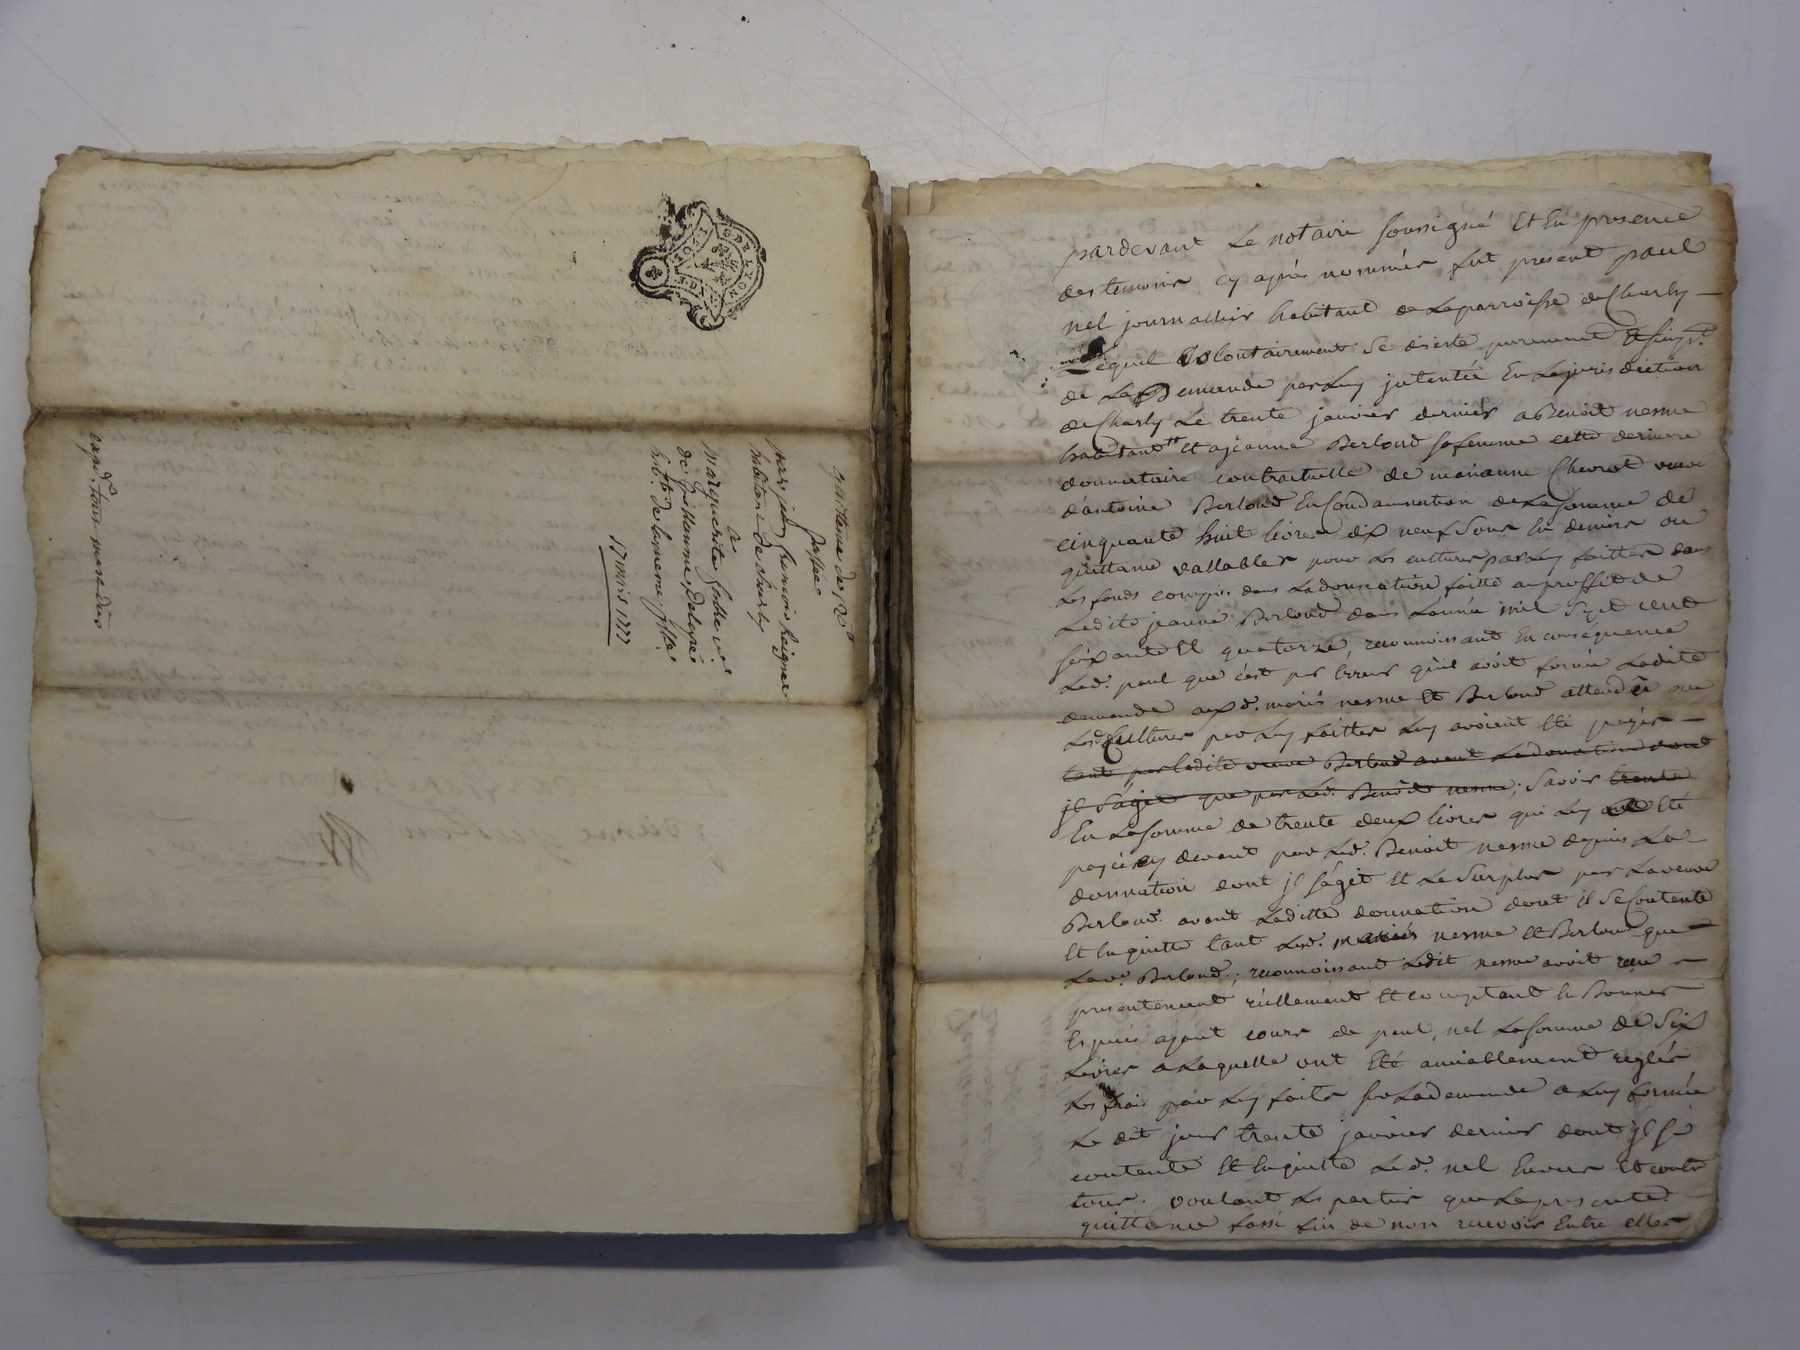 quittance de 72#
passée
par jean francois peignet
habitant de charly
a
marguerite
de Guillaume
habt. de
17 mars 1777
expd. pour mre
G. DE LYON
pardevant Le notaire soussigné Et En presence
des temoins cy après nommés fut present paul
nel journallier habitant de La parroisse de Charly —
Lequel volontairement se desiste purement & simplt.
de La Demande par Luy jntentée En La jurisdiction
de Charly Le trente janvier dernier a Benoit nesme
habitant Et a jeanne Berloud sa femme cette derniere
donnataire contractuelle de marianne Chevrot veuve
d'antoine Berloud En Condamnation de La somme de
cinquante huit livres dix neuf sous En deniers ou
quittance vallables pour Les cultures par Luy faittes dans
Les fonds compris dans La donnation faitte au proffit de
Ladite jeanne Berloud dans L'année mil sept cent
soixante Et quatorze, reconnoissant En conséquence
Led. paul que c'est par Erreur qu'il avoit formé Ladite
demande aux d. mariés nesme Et Berloud attendu que
Lesd. Cultures par Luy faittes Luy avoient Eté payés —
tant par Ladite veuve Berloud avant La donnation dont
jl s'agit que par Led. Benoit nesme; savoir trente
En La somme de trente deux livres qui Luy ont Eté
payés cy devant par Led. Benoit nesme depuis La
donnation dont jl s'agit Et Le surplus par La veuve
Berloud. avant Laditte donnation dont il se Contente
Et En quitte tant Lesd. mariés nesme Et Berloud que
La ve. Berloud.; reconnoissant Ledit nesme avoir reçu —
presentement réellement Et comptant En Bonnes
Espèces ayant cours de paul nel La somme de Six
Livres a Laquelle ont Eté amiablement reglés
Les frais par Luy faits sur La demande a Luy formée
Le dit jour trente janvier dernier dont jl se
contente Et En quitte Led. nel Envers Et contre
tous. voulant Les parties que La presente
quittance fasse fin de non recevoir Entre elles